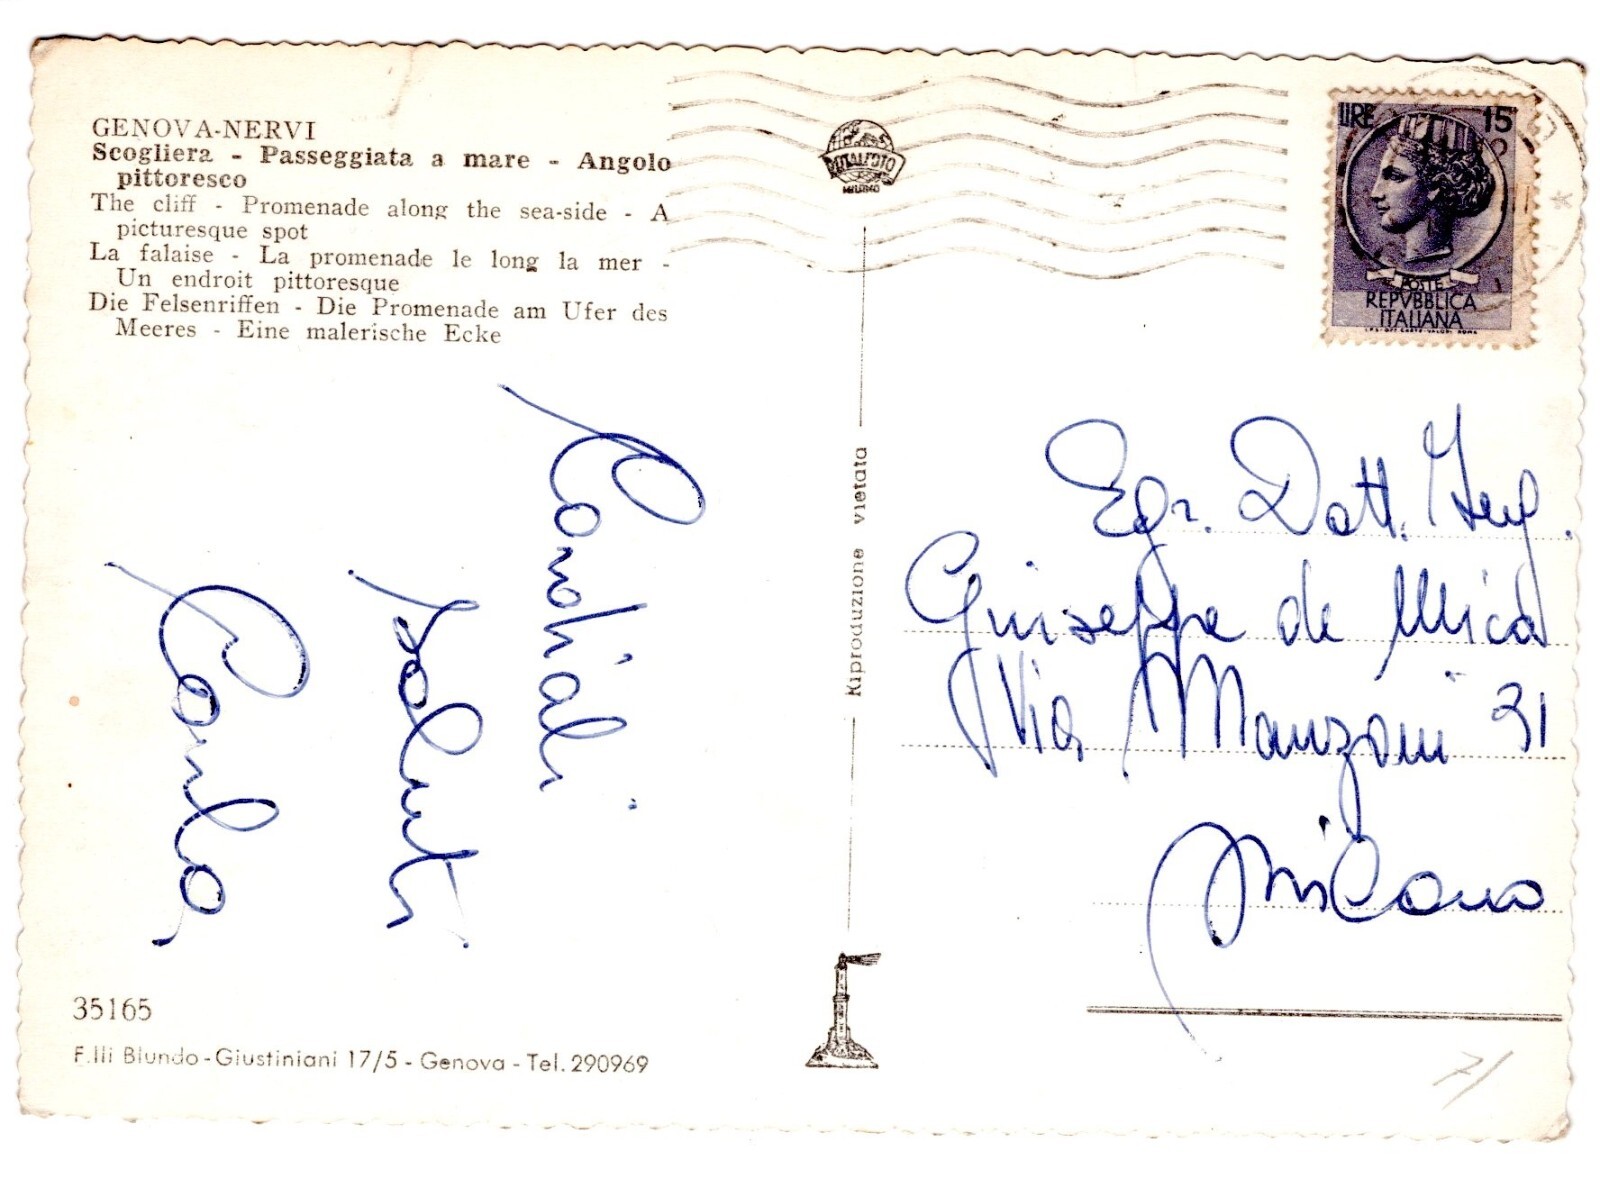 GENOVA-NERVI
Scogliera - Passeggiata a mare - Angolo
pittoresco
The cliff - Promenade along the sea-side - A
picturesque spot
La falaise - La promenade le long la mer -
Un endroit pittoresque
Die Felsenriffen - Die Promenade am Ufer des
Meeres - Eine malerische Ecke
Cordiali
saluti
Carlo
35165
F.lli Biundo - Giustiniani 17/5 - Genova - Tel. 290969
Riproduzione vietata
TOTALFOTO
MILANO
LIRE 15
POSTE
REPVBBLICA
ITALIANA
Egr. Dott. Ing.
Giuseppe de Micá
Via Manzoni 31
Milano